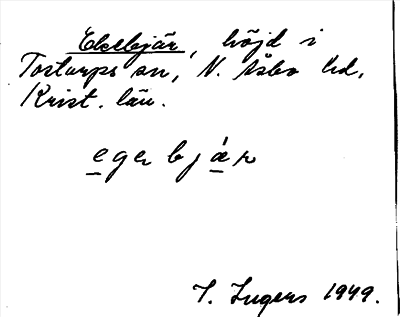 Ekebjär, höjd i
Tostarps sn, N. Åsbo hd,
Krist. län.
egebjær
I. Ingers 1949.